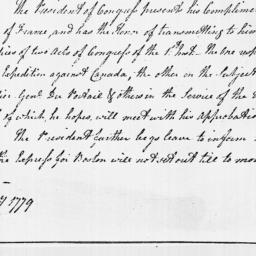 The President of Congress presents his Complimen
of France and has the Honor of transmitting to him
ies of two Acts of Congress of the 1st Inst. The one resp
Expedition against Canada, the other on the Subject
Genl. Du Portail & others in the Service of the
of which, he hopes, will meet with his Approbatio
The President further begs leave to inform
the Express for Boston will not set out till to mor
1779